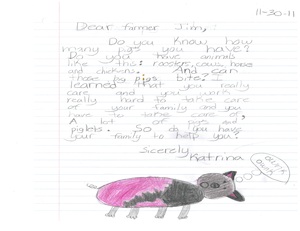 11-30-11
Dear farmer Jim,:
Do you know how
many pigs you have?
Do you have animals
like this: roosters, cows, horses
and chickens. And can
those big pigs bite? I
learned that you really
care and you work
really hard to take care
of your family and you
have to take care of,
A lot of pigs and
piglets. So do you have
your family to help you?
Sicerely,
Katrina
oink
oink